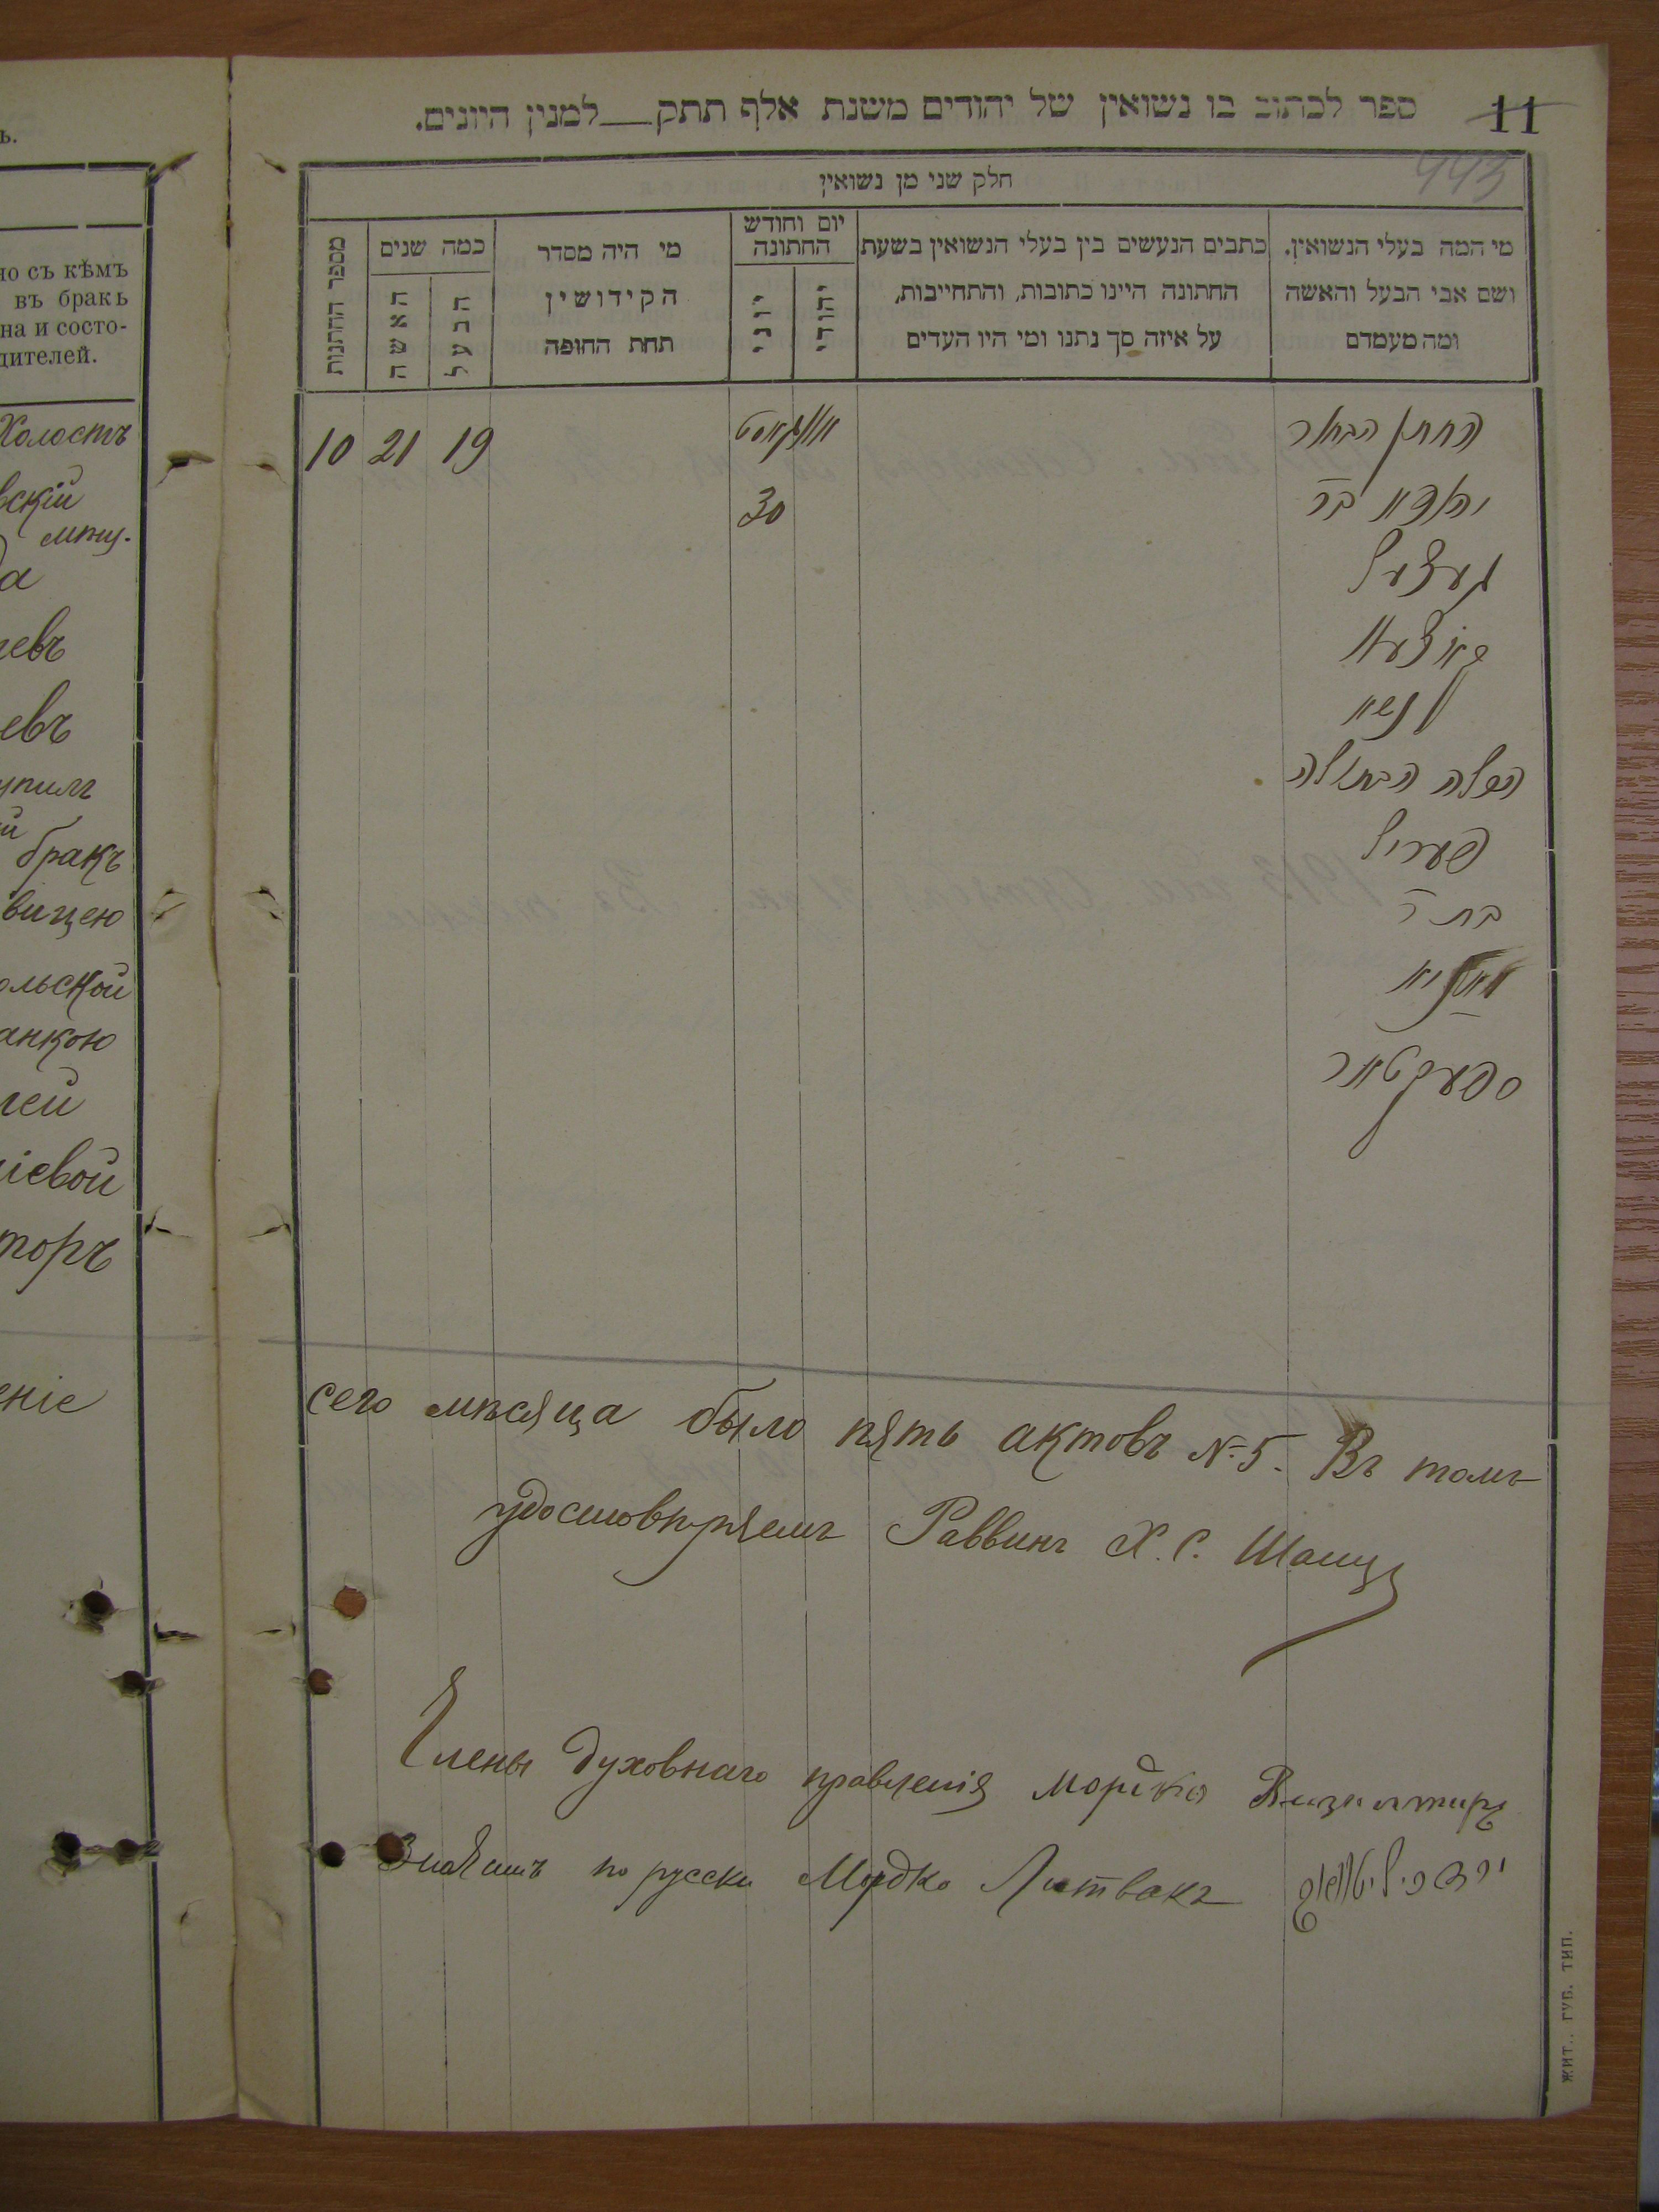 ъ.
но съ кѣмъ
въ бракъ
на и состо-
дителей.
Холостъ
вскій
мѣщ.
да
евъ
евъ
упилъ
й
бракъ
вицею
ольской
анкою
лей
іевой
торъ
еніе
11
ספר לכתוב בו נשואין של יהודים משנת אלף תתק___למנין היונים.
443
חלק שני מן נשואין
מי המה בעלי הנשואין.
ושם אבי הבעל והאשה
ומה מעמדם
כתבים הנעשים בין בעלי הנשואין בשעת
החתונה היינו כתובות, והתחייבות,
על איזה סך נתנו ומי היו העדים
יום וחודש
החתונה
יהודי
יוני
מי היה מסדר
הקידושין
תחת החופה
כמה שנים
הבעל
האשה
מספר החתנות
החתן הבחור
בר
געצעל
הכלה הבתולה
פעריל
בת ר
ספעקטאר
אווגוסט
30
19
21
10
сего мѣсяца было пять актовъ №5. Въ томъ
удостовѣряемъ Раввинъ Х. С.
Члены духовнаго правленія Мордко
по русски Мордко Литвакъ
ליטוואק
ЖИТ. ГУБ. ТИП.